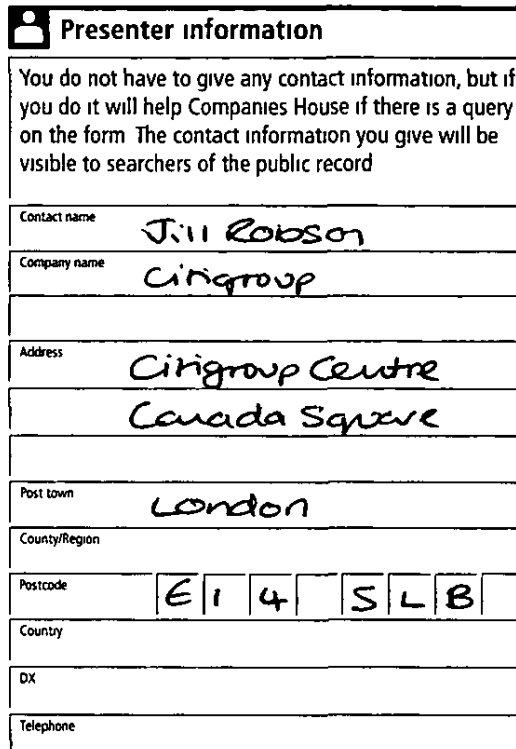 Presenter information
You do not have to give any contact information, but if
you do it will help Companies House if there is a query
on the form The contact information you give will be
visible to searchers of the public record
Contact name Jill Robson
Company name Citigroup
Address Citigroup Centre
Canada Square
Post town London
County/Region
Postcode E14 5LB
Country
DX
Telephone